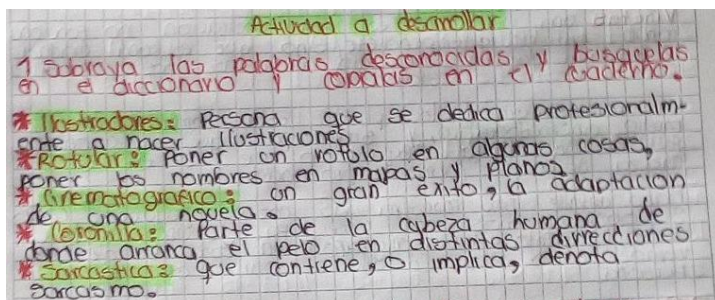 Actividad a desarrollar
1 Sobraya las palabras desconocidas y busqcelas
en e diccionario y copialas en el cuaderno.
* Ilustradores: Persona que se dedica profesionalm-
ente a hacer ilustraciones
* Rotular: Poner un rotulo en algunas cosas,
poner los nombres en mapas y planos
* Cinematografico: un gran exito, la adaptacion
de una novela.
* Coronilla: Parte de la cabeza humana de
donde arranca el pelo en distintas dirrecciones
* Sarcastica: que contiene, o implica, denota
sarcasmo.